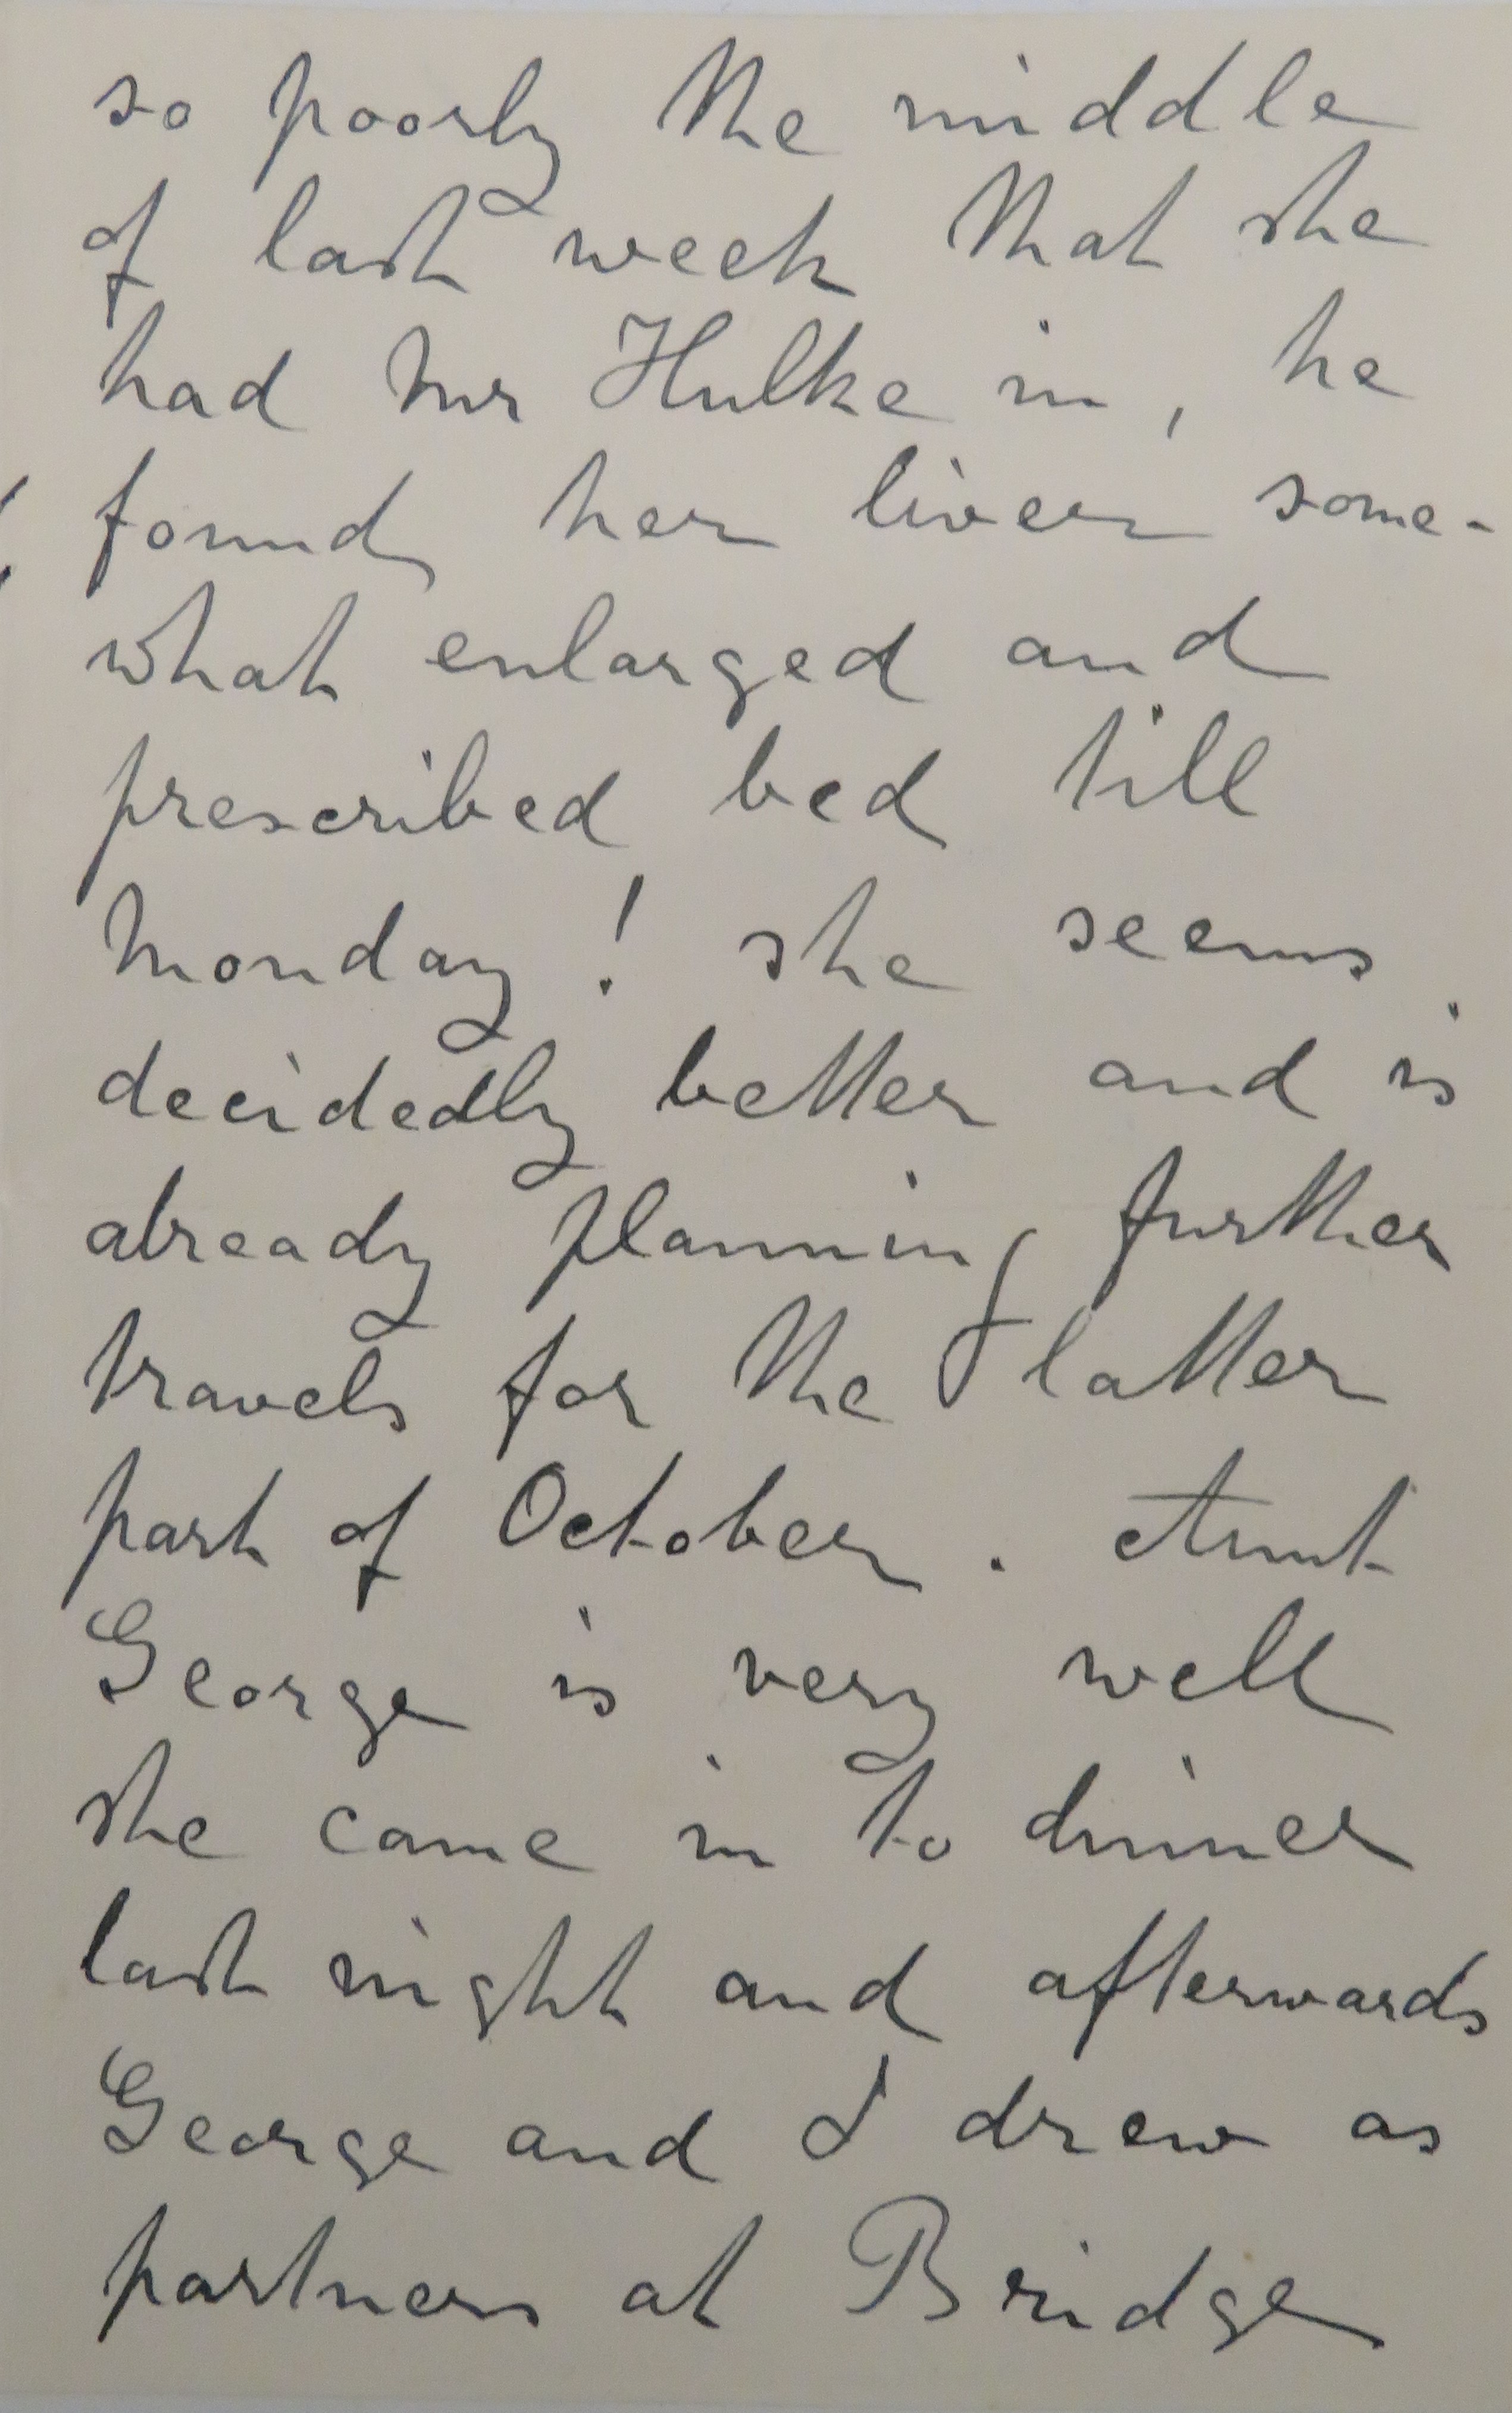 so poorly the middle
of last week that she
had Mr Hulke in, he
found her liver some-
what enlarged and
prescribed bed till
Monday! she seems
decidedly better and is
already planning further
travels for the latter
part of October. Aunt
George is very well
she came in to dinner
last night and afterwards
George and I drew as
partners at Bridge